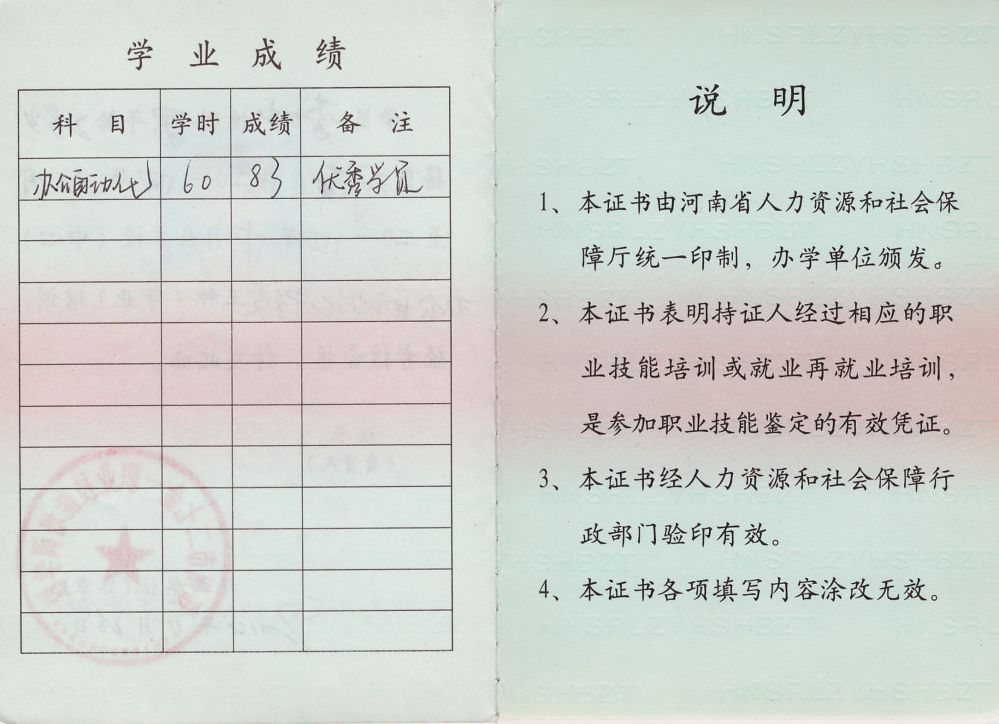 学业成绩
科目 学时 成绩 备注
办公自动化 60 83 优秀学员
说明
1、本证书由河南省人力资源和社会保
障厅统一印制，办学单位颁发。
2、本证书表明持证人经过相应的职
业技能培训或就业再就业培训，
是参加职业技能鉴定的有效凭证。
3、本证书经人力资源和社会保障行
政部门验印有效。
4、本证书各项填写内容涂改无效。
HNSRLZYHSHBZT